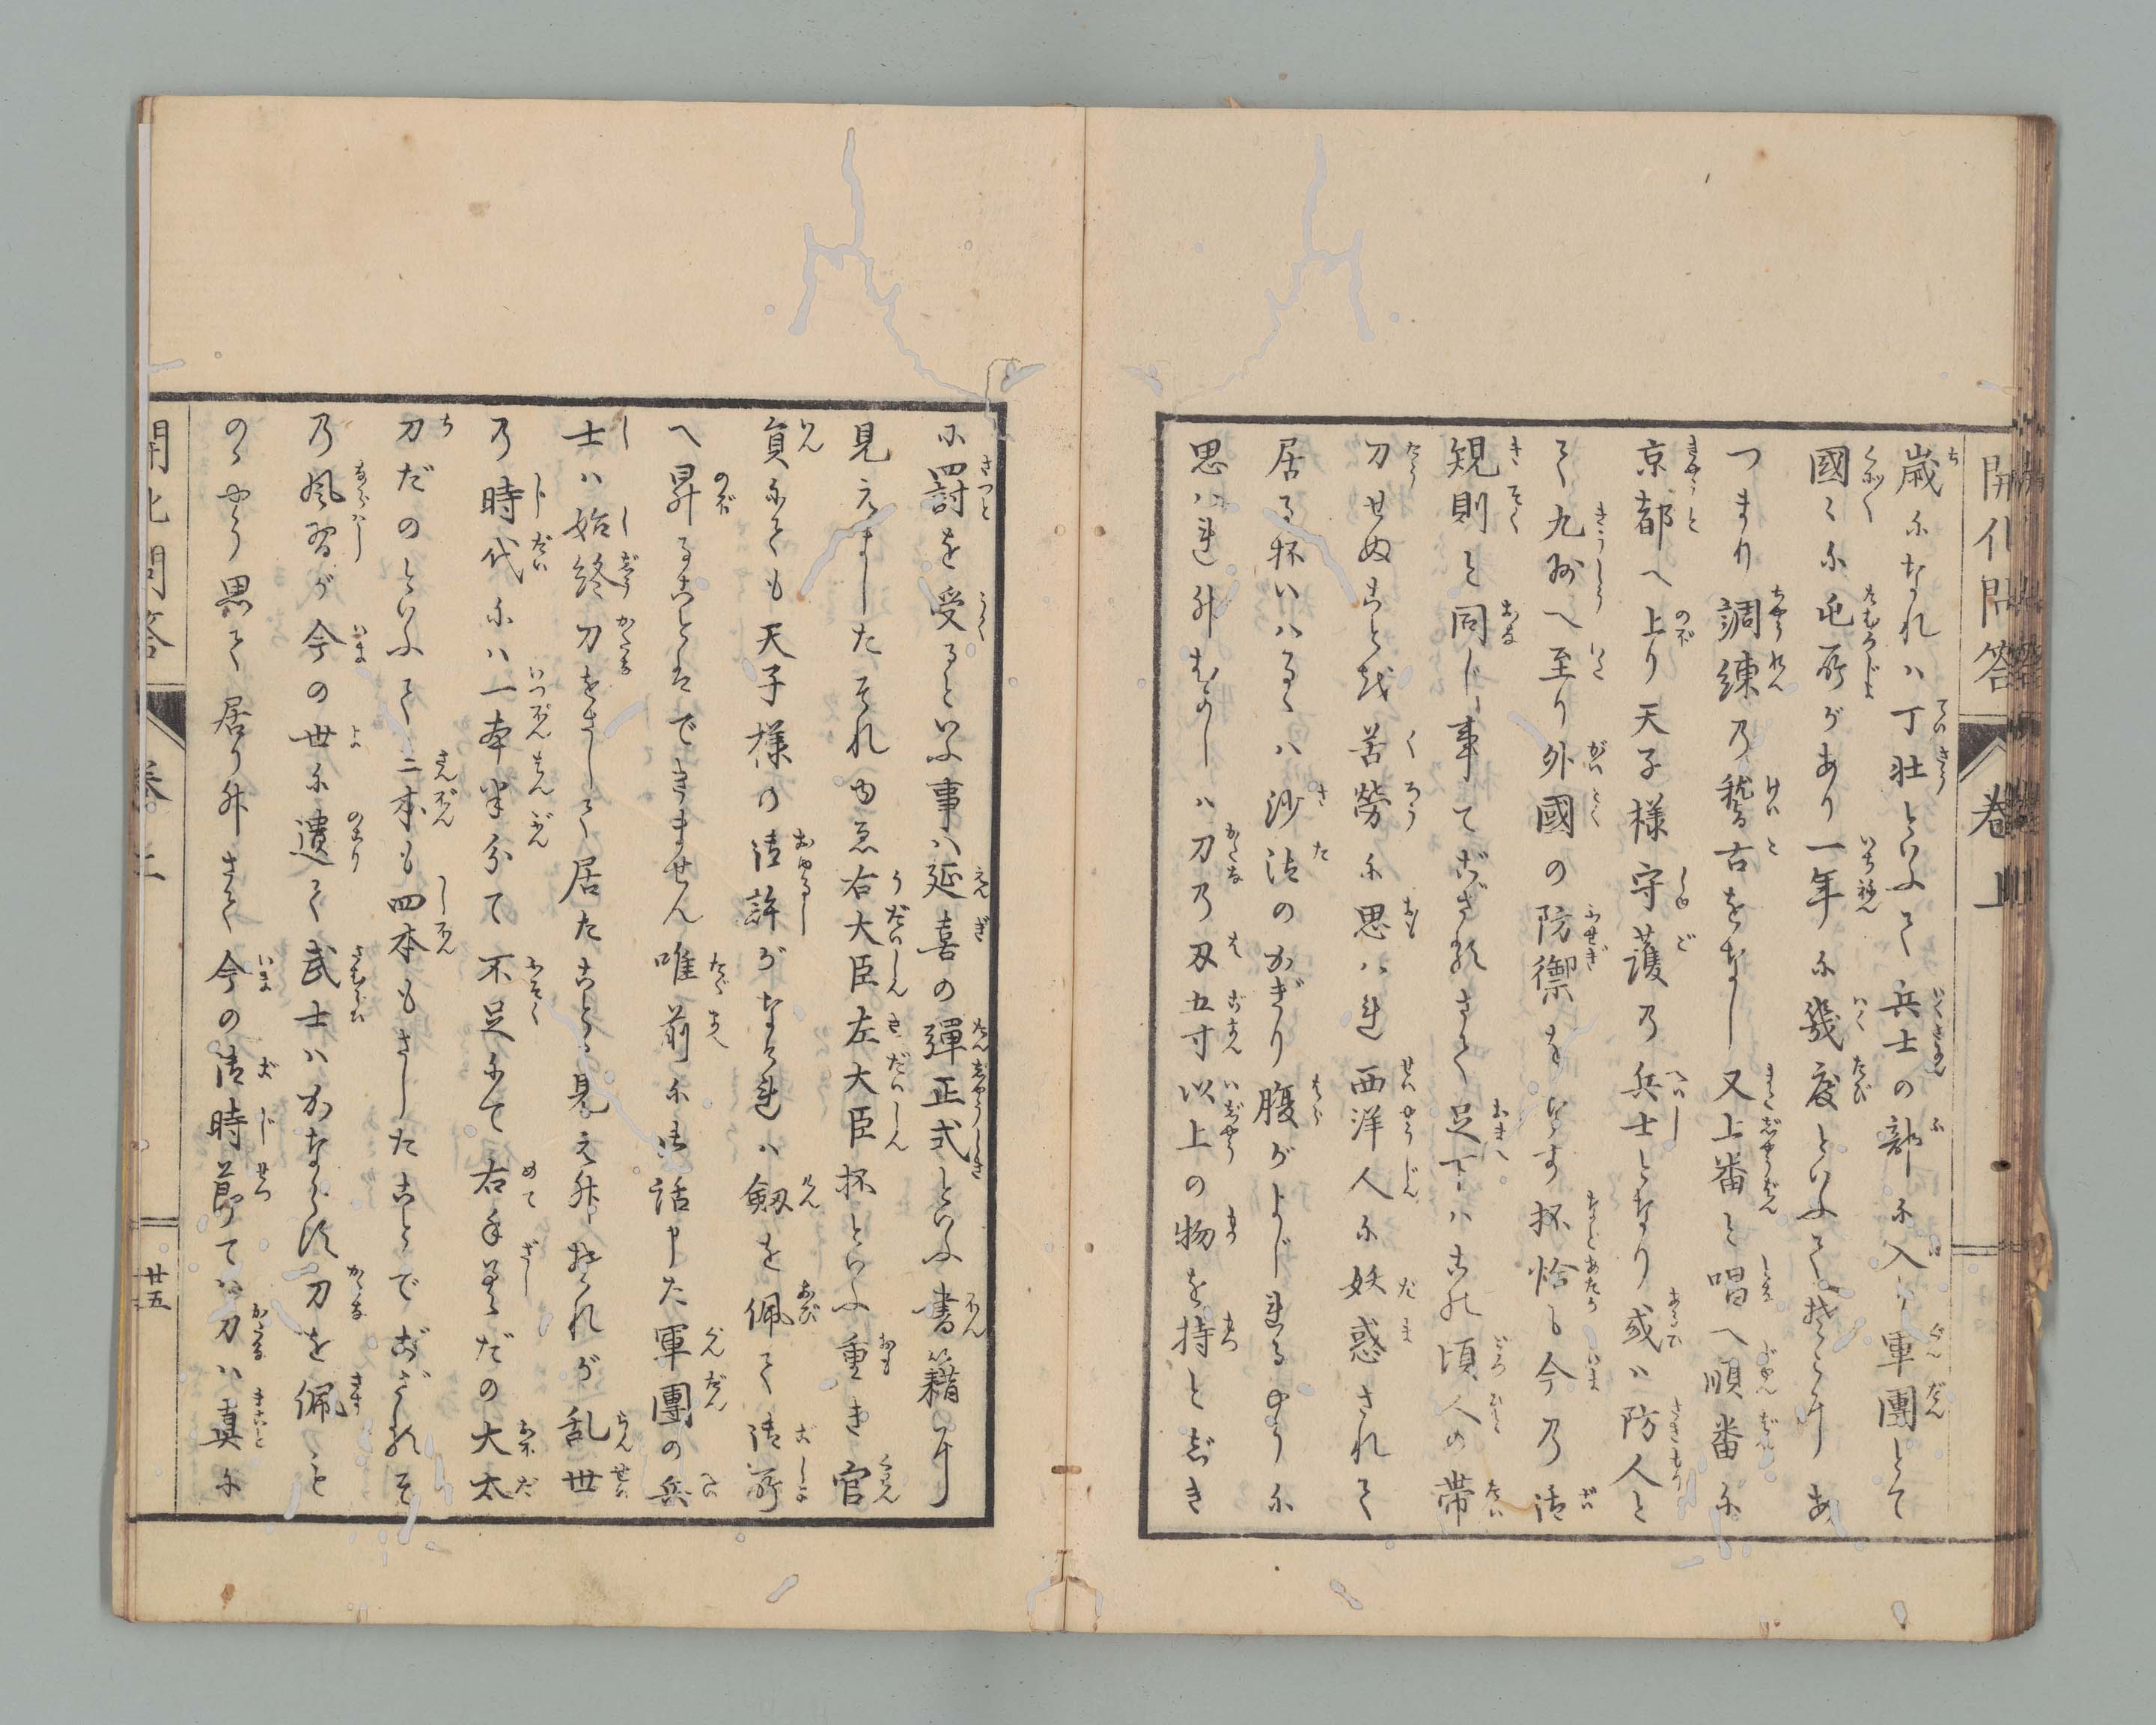 開化問答 巻上
歳になれハ丁壮といふて兵士の部に入り軍團とて
國々に屯所があり一年に幾度といふてそこにあ
つまり調練乃稽古をなし又上番と唱へ順番に
京都へ上り天子様守護乃兵士となり或ハ防人と
て九州へ至り外國の防禦をいたす抔恰も今乃御
規則と同じ事てござるさて足下ハこの頃人の帯
刀せぬことを苦勞に思ハれ西洋人に妖惑されて
居る抔いハるゝハ沙汰のかぎり腹がよじれるやうに
思ハれ升むかしハ刀乃刄五寸以上の物を持とぢき
に罸を受るといふ事ハ延喜の彈正式といふ書籍に
見えましたそれゆゑ右大臣左大臣抔といふ重き官
員にても天子様の御許がなけれハ劔を佩て御所
へ昇ることはできません唯前に御話申た軍團の兵
士ハ始終刀をさして居たことゝ見え升それが乱世
乃時代にハ一本半分て不足にて右手差だの大太
刀だのといふて二本も四本もさしたことでござるそ
乃風習が今の世に遺て武士ハかならず刀を佩こと
のやう思て居り升さて今の御時節てハ刀ハ真に
開化問答 巻上 廿五